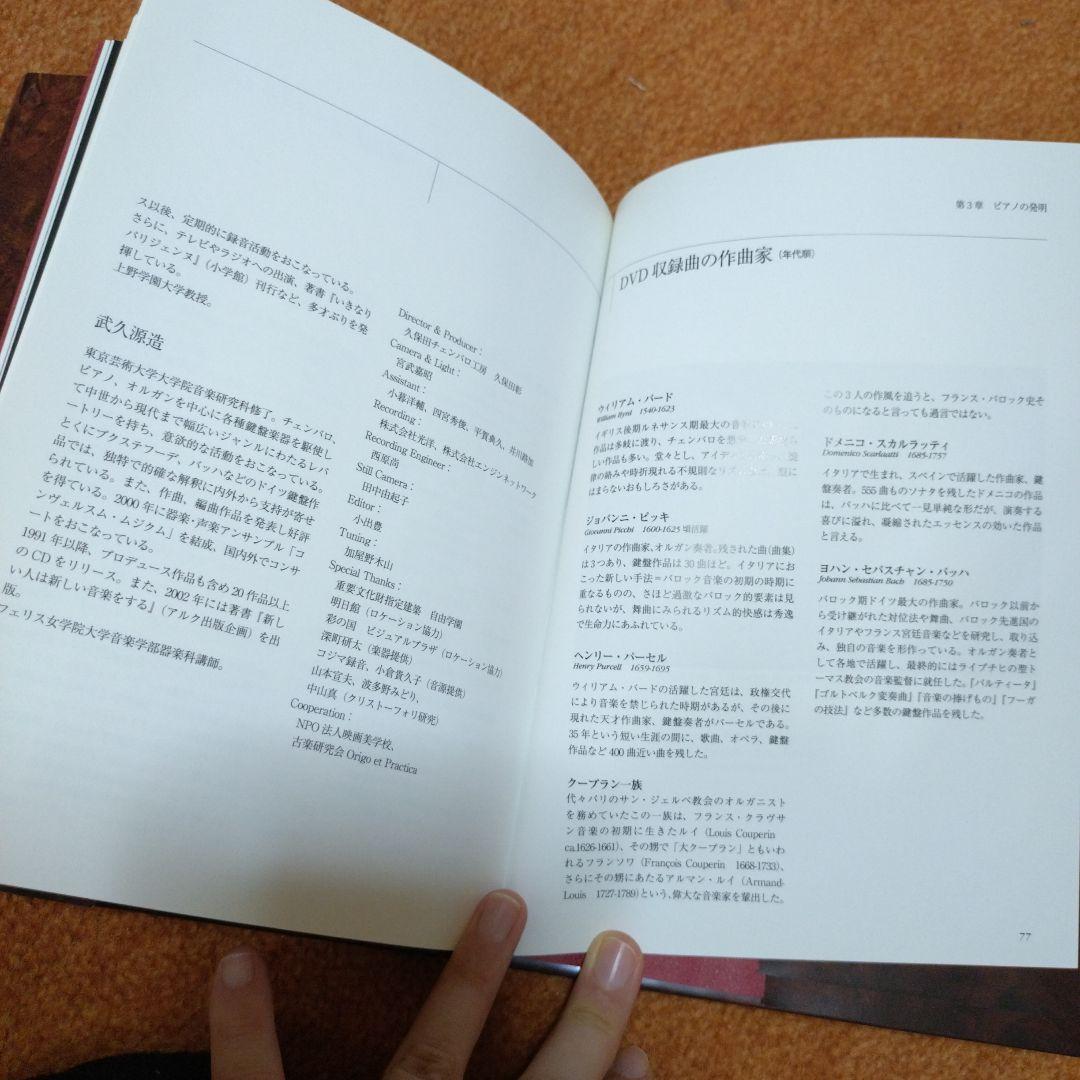 ス以後、定期的に録音活動をおこなっている。
さらに、テレビやラジオへの出演、著書『いきなり
パリジェンヌ』（小学館）刊行など、多才ぶりを発
揮している。
上野学園大学教授。
武久源造
東京芸術大学大学院音楽研究科修了。チェンバロ、
ピアノ、オルガンを中心に各種鍵盤楽器を駆使し
て中世から現代まで幅広いジャンルにわたるレパ
ートリーを持ち、意欲的な活動をおこなっている。
とくにブクステフーデ、バッハなどのドイツ鍵盤作
品では、独特で的確な解釈に内外から支持が寄せ
られている。また、作曲、編曲作品を発表し好評
を得ている。2000年に器楽・声楽アンサンブル「コ
ンヴェルスム・ムジクム」を結成、国内外でコンサ
ートをおこなっている。
1991年以降、プロデュース作品も含め20作品以上
のCDをリリース。また、2002年には著書『新し
い人は新しい音楽をする』（アルク出版企画）を出
版。
フェリス女学院大学音楽学部器楽科講師。
Director & Producer：
久保田チェンバロ工房　久保田彰
Camera & Light：
宮武嘉昭
Assistant：
小暮洋輔、四宮秀俊、平賀奐久、井川路加
Recording：
株式会社光洋、株式会社エンジンネットワーク
Recording Engineer：
西原尚
Still Camera：
田中由起子
Editor：
小出豊
Tuning：
加屋野木山
Special Thanks：
重要文化財指定建築　自由学園
明日館（ロケーション協力）
彩の国　ビジュアルプラザ（ロケーション協力）
深町研太（楽器提供）
コジマ録音、小倉貴久子（音源提供）
山本宣夫、波多野みどり、
中山真（クリストーフォリ研究）
Cooperation：
NPO法人映画美学校、
古楽研究会 Origo et Practica
第3章　ピアノの発明
DVD 収録曲の作曲家（年代順）
ウィリアム・バード
William Byrd　1540-1623
イギリス後期ルネサンス期最大の音
作品は多岐に渡り、チェンバロを
しい作品も多い。堂々とし、アイデ
律の絡みや時折現れる不規則なリズ
はまらないおもしろさがある。
ジョバンニ・ピッキ
Giovanni Picchi　1600-1625 頃活躍
イタリアの作曲家、オルガン奏者。残された曲（曲集）
は3つあり、鍵盤作品は30曲ほど。イタリアにお
こった新しい手法＝バロック音楽の初期の時期に
重なるものの、さほど過激なバロック的要素は見
られないが、舞曲にみられるリズム的快感は秀逸
で生命力にあふれている。
ヘンリー・パーセル
Henry Purcell　1659-1695
ウィリアム・バードの活躍した宮廷は、政権交代
により音楽を禁じられた時期があるが、その後に
現れた天才作曲家、鍵盤奏者がパーセルである。
35年という短い生涯の間に、歌曲、オペラ、鍵盤
作品など400曲近い曲を残した。
クープラン一族
代々パリのサン・ジェルベ教会のオルガニスト
を務めていたこの一族は、フランス・クラヴサ
ン音楽の初期に生きたルイ（Louis Couperin
ca.1626-1661）、その甥で「大クープラン」ともいわ
れるフランソワ（François Couperin　1668-1733）、
さらにその甥にあたるアルマン・ルイ（Armand-
Louis　1727-1789）という、偉大な音楽家を輩出した。
この3人の作風を追うと、フランス・バロック史そ
のものになると言っても過言ではない。
ドメニコ・スカルラッティ
Domenico Scarlaatti　1685-1757
イタリアで生まれ、スペインで活躍した作曲家、鍵
盤奏者。555曲ものソナタを残したドメニコの作品
は、バッハに比べて一見単純な形だが、演奏する
喜びに溢れ、凝縮されたエッセンスの効いた作品
と言える。
ヨハン・セバスチャン・バッハ
Johann Sebastian Bach　1685-1750
バロック期ドイツ最大の作曲家。バロック以前か
ら受け継がれた対位法や舞曲、バロック先進国の
イタリアやフランス宮廷音楽などを研究し、取り込
み、独自の音楽を形作っている。オルガン奏者と
して各地で活躍し、最終的にはライプチヒの聖トー
マス教会の音楽監督に就任した。『パルティータ』
『ゴルトベルク変奏曲』『音楽の捧げもの』『フーガ
の技法』など多数の鍵盤作品を残した。
77